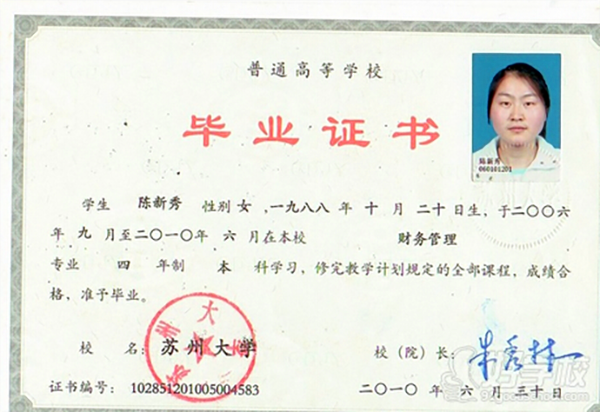 普通高等学校
毕业证书
陆新秀
060101201
学生 陈新秀 性别 女 ,一九八八 年 十 月 二十 日生，于二〇〇六
年 九 月至二〇一〇年 六 月在本校 财务管理
专业 四 年制 本 科学习，修完教学计划规定的全部课程，成绩合
格，准予毕业。
校 名: 苏州大学
校（院）长: 朱秀林
证书编号: 102851201005004583
二〇一〇 年 六 月 三十 日